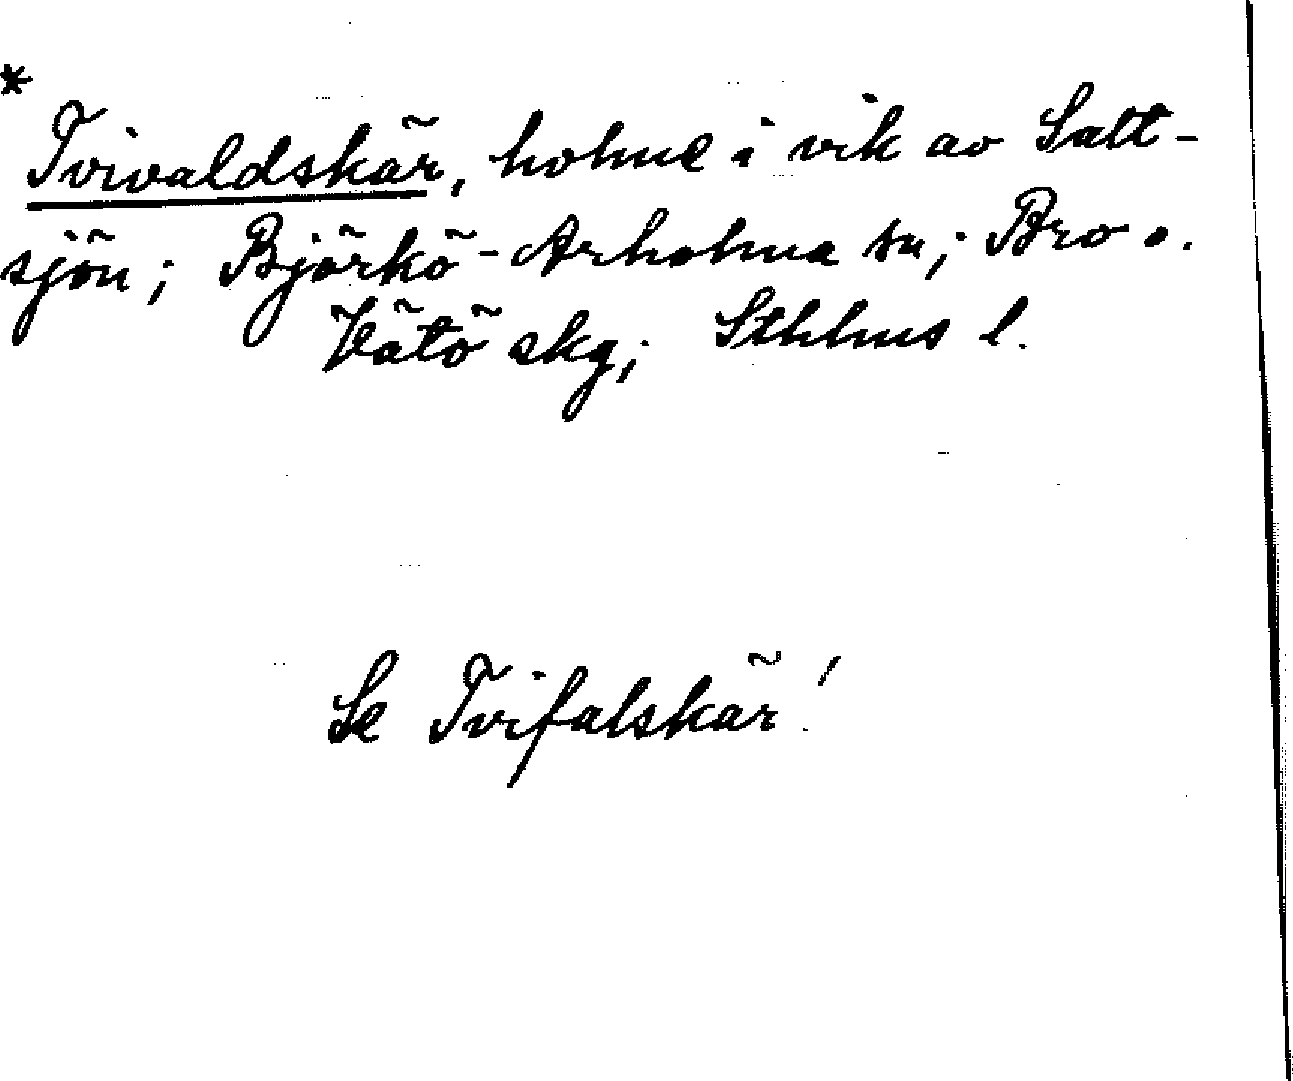 *
Tvivaldskär, holme i vik av Salt-
sjön; Björkö-Arholma sn; Bro o.
Vätö skg; Sthlms l.
Se Tvifalskär!